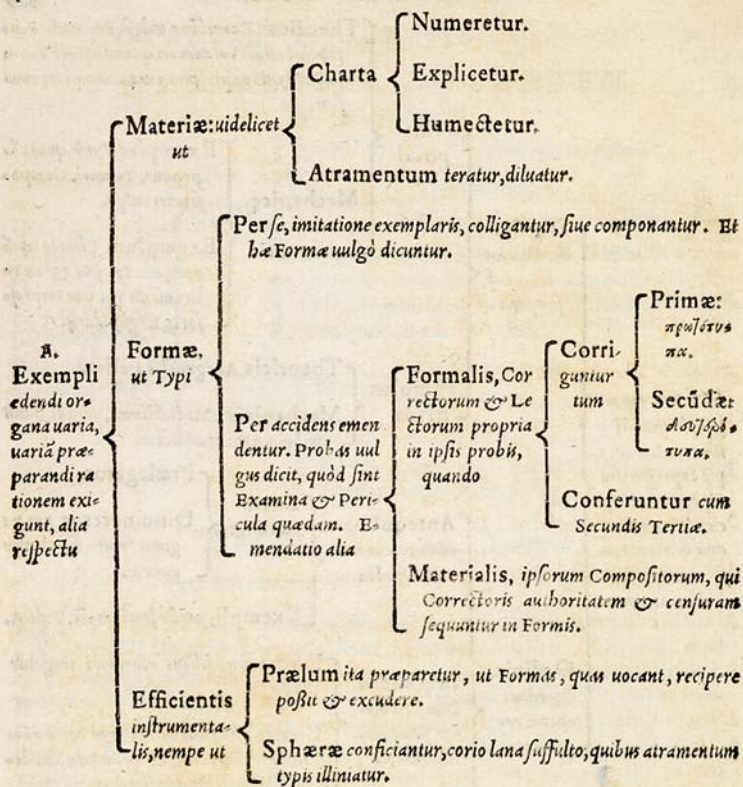 A.
Exempli
edendi or-
gana uaria,
uariā præ-
parandi ra
tionem exi-
gunt, alia
respectu
Materiæ: uidelicet
ut
Charta
Numeretur.
Explicetur.
Humectetur.
Atramentum teratur, diluatur.
Formæ,
ut Typi
Per se, imitatione exemplaris, colligantur, siue componantur. Et
hæ Formæ uulgò dicuntur.
Per accidens emen
dentur. Probas uul
gus dicit, quòd sint
Examina & Peri-
cula quædam. E-
mendatio alia
Formalis, Cor
rectorum & Le
ctorum propria
in ipsis probis,
quando
Corri-
guntur
tum
Primæ:
πρωτότυ-
πα.
Secūdæ:
δευτερό-
τυπα.
Conferuntur cum
Secundis Tertiæ.
Materialis, ipsorum Compositorum, qui
Correctoris authoritatem & censuram
sequuntur in Formis.
Efficientis
instrumenta-
lis, nempe ut
Prælum ita præparetur, ut Formas, quas uocant, recipere
possit & excudere.
Sphæræ conficiantur, corio lana suffulto, quibus atramentum
typis illiniatur.